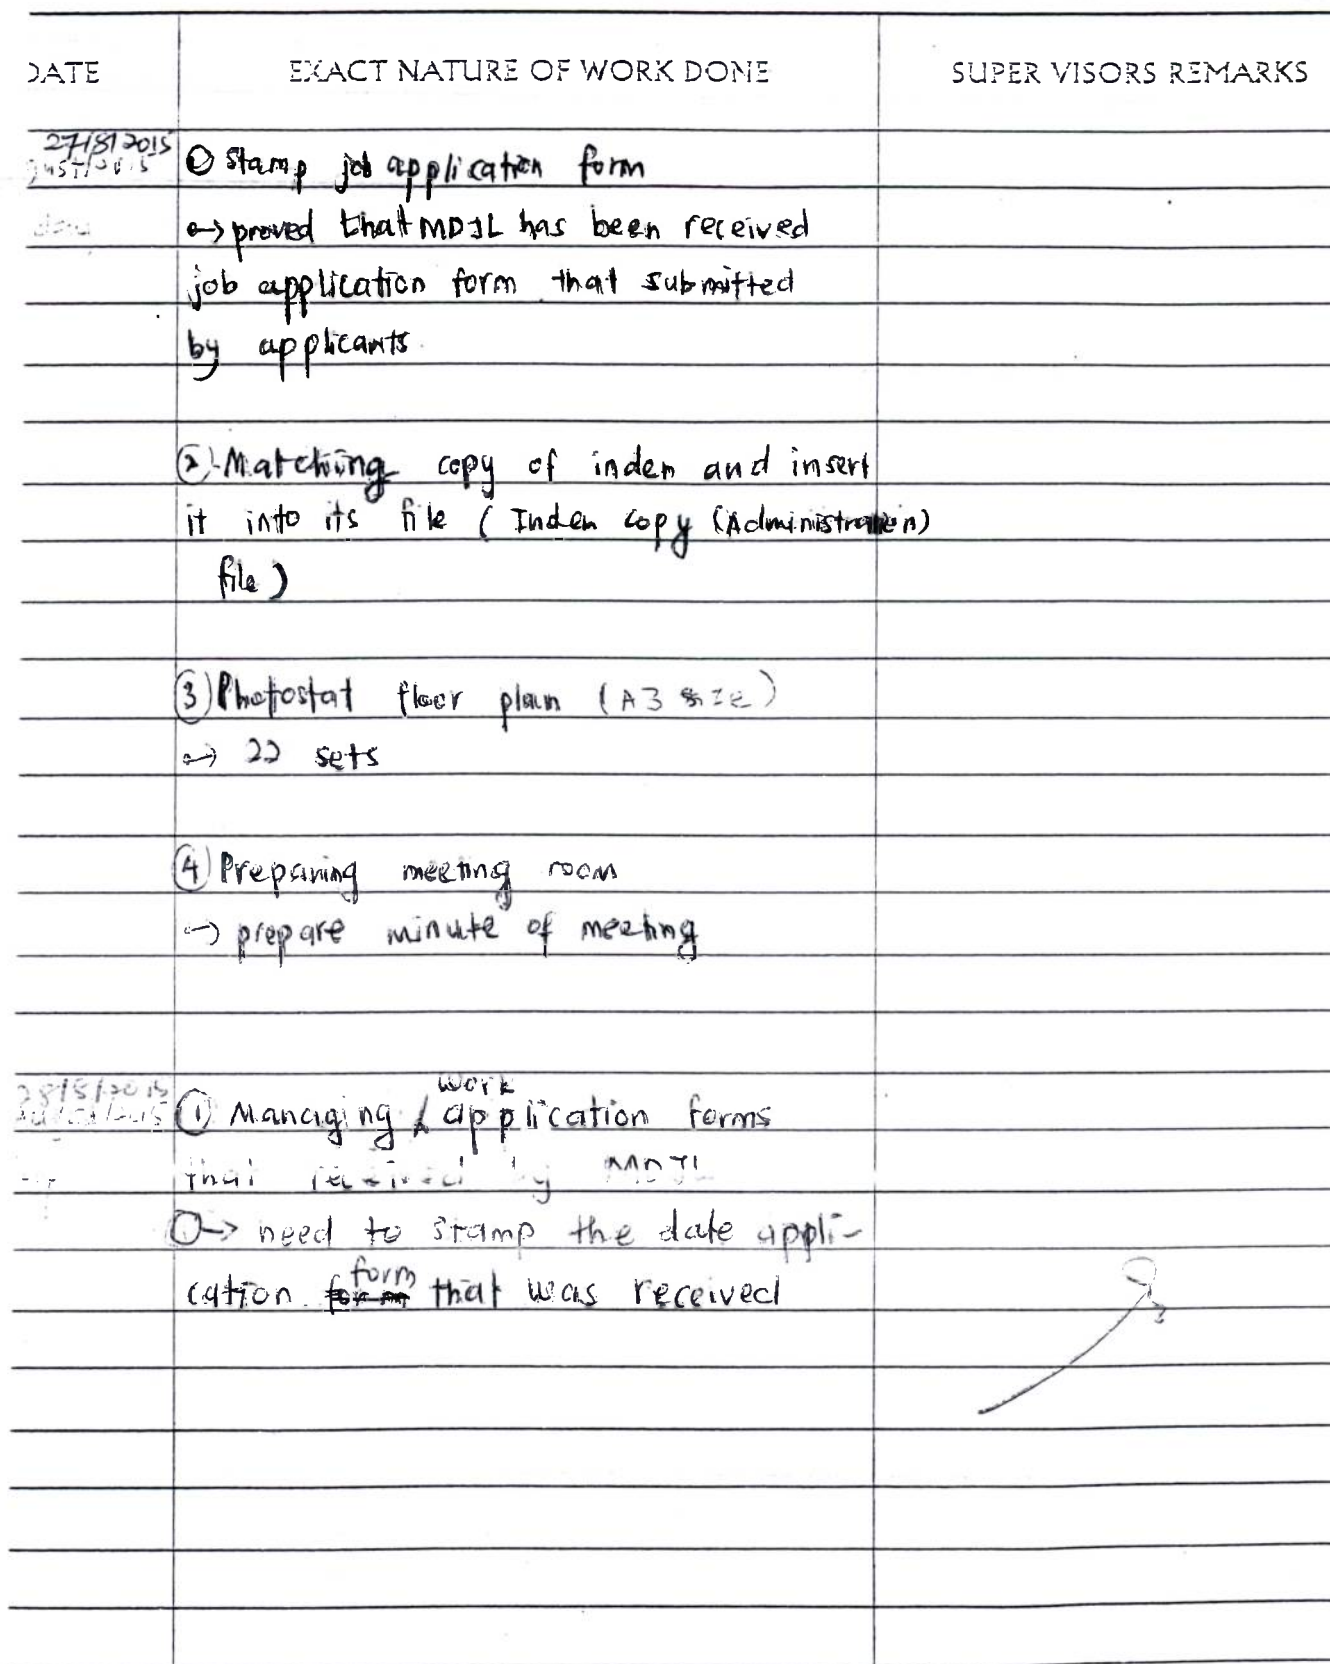 DATE EXACT NATURE OF WORK DONE SUPER VISORS REMARKS
27/8/2015 ① Stamp job application form
→ proved that MDJL has been received
job application form that submitted
by applicants.
② Matching copy of inden and insert
it into its file ( Inden copy (Administration)
file )
③ Photostat floor plan (A3 size)
→ 22 sets
④ Preparing meeting room
→ prepare minute of meeting
work
28/8/2015 ① Managing application forms
that received by MDJL
→ need to stamp the date appli-
form
cation form that was received